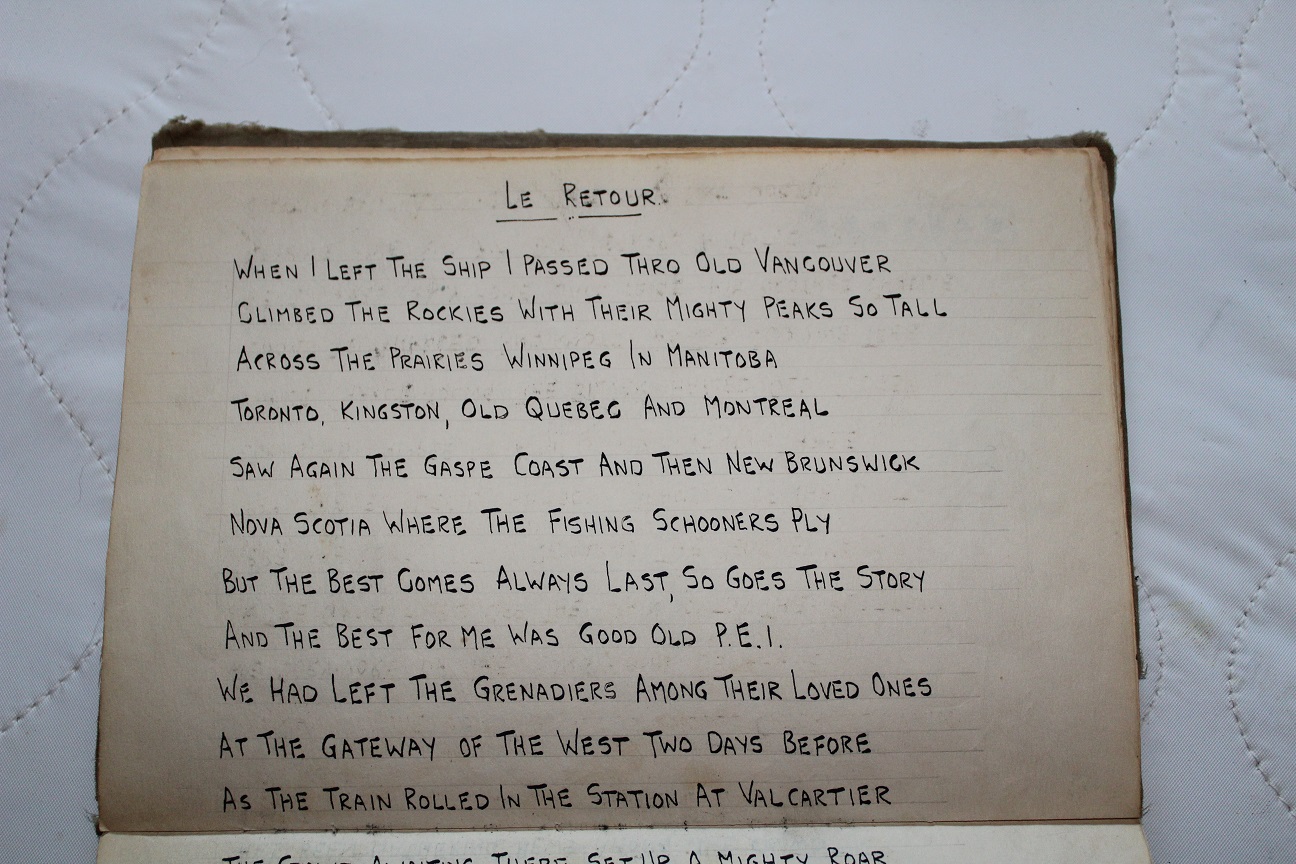 LE RETOUR.
WHEN I LEFT THE SHIP I PASSED THRO OLD VANCOUVER
CLIMBED THE ROCKIES WITH THEIR MIGHTY PEAKS SO TALL
ACROSS THE PRAIRIES WINNIPEG IN MANITOBA
TORONTO, KINGSTON, OLD QUEBEC AND MONTREAL
SAW AGAIN THE GASPE COAST AND THEN NEW BRUNSWICK
NOVA SCOTIA WHERE THE FISHING SCHOONERS PLY
BUT THE BEST COMES ALWAYS LAST, SO GOES THE STORY
AND THE BEST FOR ME WAS GOOD OLD P.E.I.
WE HAD LEFT THE GRENADIERS AMONG THEIR LOVED ONES
AT THE GATEWAY OF THE WEST TWO DAYS BEFORE
AS THE TRAIN ROLLED IN THE STATION AT VALCARTIER
THE THERE SET UP A MIGHTY ROAR